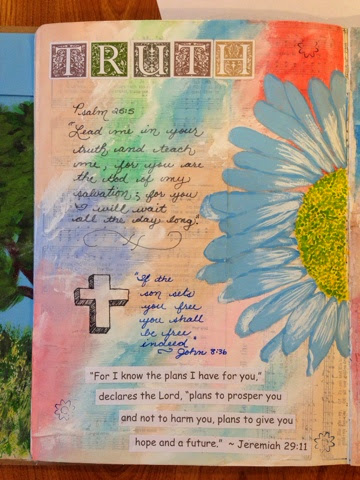 TRUTH
Psalm 25:5
"Lead me in your
truth and teach
me, for you are
the God of my
salvation; for you
I will wait
all the day long."
"If the
son sets
you free
you shall
be free
indeed"
John 8:36
"For I know the plans I have for you,"
declares the Lord, "plans to prosper you
and not to harm you, plans to give you
hope and a future." ~ Jeremiah 29:11